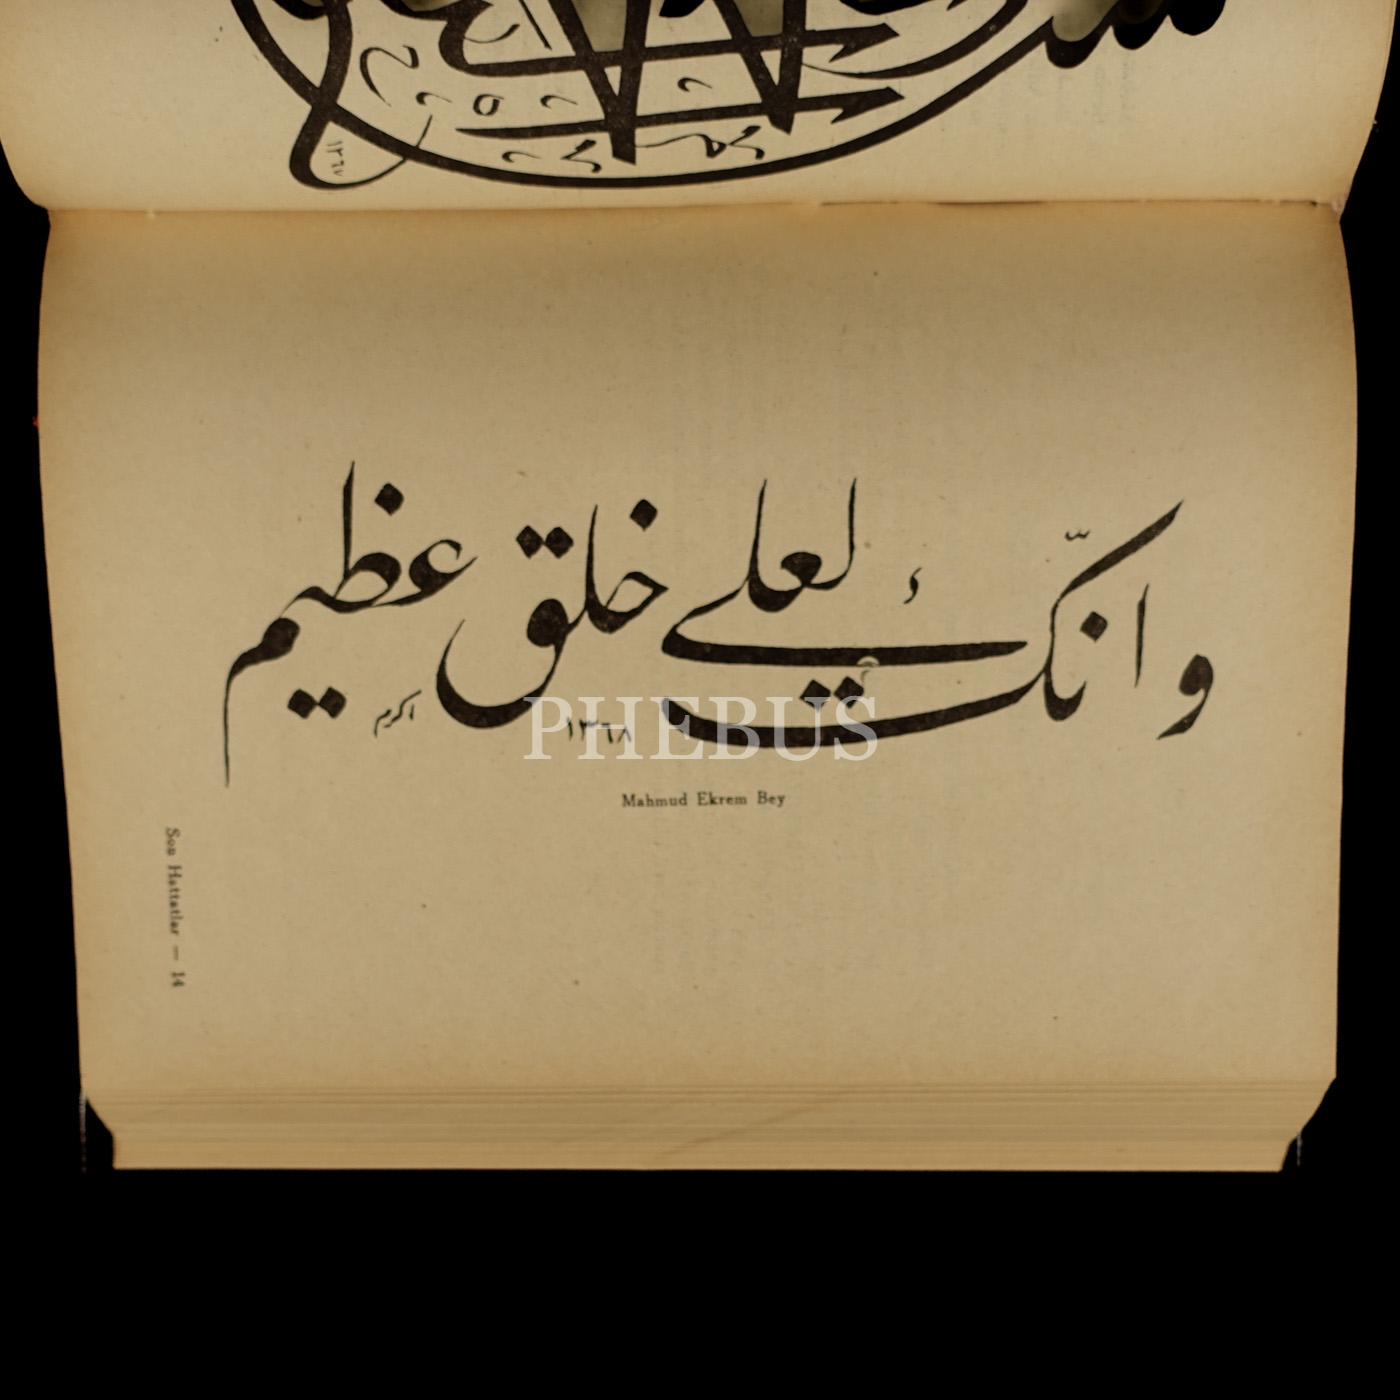 ١٣٦٧
وانّك لعلے خلق عظيم
اكرم
١٣٦٨
PHEBUS
Mahmud Ekrem Bey
Son Hattatlar — 14